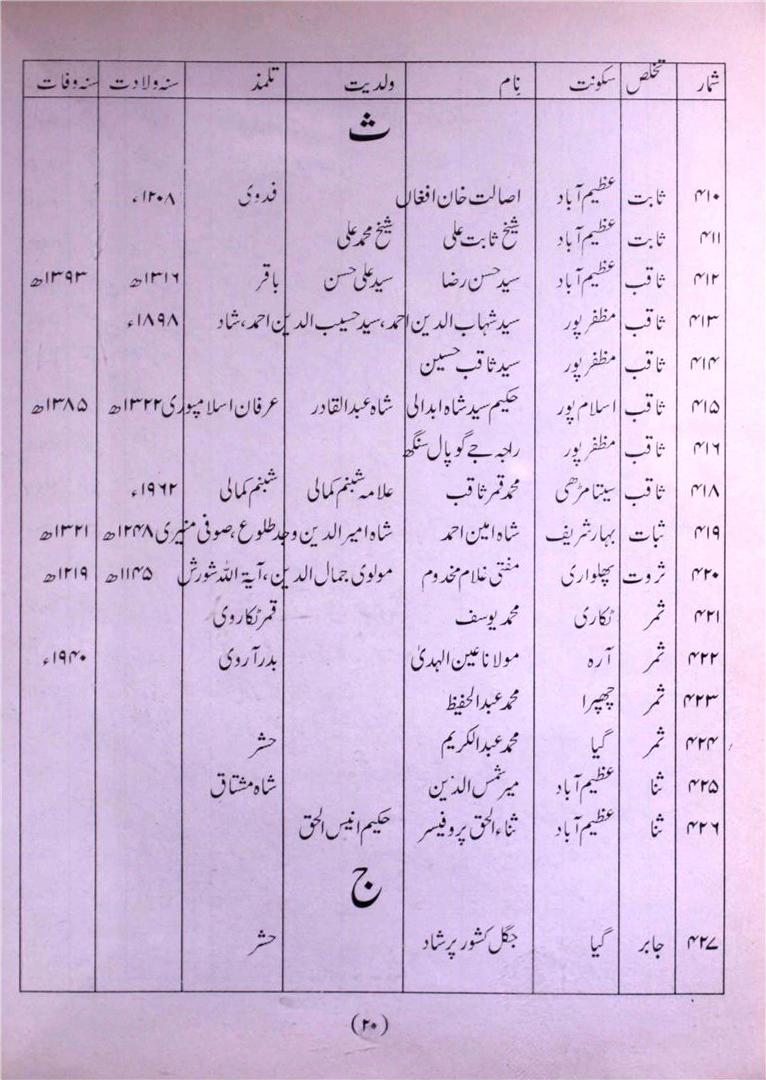 شمار تخلص سکونت نام ولدیت تلمذ سنہ ولادت سنہ وفات
ث
۴۱۰ ثابت عظیم آباد اصالت خان افغاں فدوی ۱۲۰۸ء
۴۱۱ ثابت عظیم آباد شیخ ثابت علی شیخ محمد علی
۴۱۲ ثاقب عظیم آباد سید حسن رضا سید علی حسن باقر ۱۳۱۶ھ ۱۳۹۳ھ
۴۱۳ ثاقب مظفر پور سید شہاب الدین احمد، سید حسیب الدین احمد، شاد ۱۸۹۸ء
۴۱۴ ثاقب مظفر پور سید ثاقب حسین
۴۱۵ ثاقب اسلام پور حکیم سید شاہ ابدالی شاہ عبدالقادر عرفان اسلامپوری ۱۳۲۲ھ ۱۳۸۵ھ
۴۱۶ ثاقب مظفر پور راجہ جے گوپال سنگھ
۴۱۸ ثاقب سیتا مڑھی محمد قمر ثاقب علامہ شبنم کمالی شبنم کمالی ۱۹۶۲ء
۴۱۹ ثبات بہار شریف شاہ امین احمد شاہ امیر الدین وجد طلوع، صوفی منیری ۱۲۴۸ھ ۱۳۲۱ھ
۴۲۰ ثروت پھلواری مفتی غلام مخدوم مولوی جمال الدین، آیۃ اللہ شورش ۱۱۴۵ھ ۱۲۱۹ھ
۴۲۱ ثمر ٹکاری محمد یوسف قمر ٹکاروی
۴۲۲ ثمر آرہ مولانا عین الہدیٰ بدر آروی ۱۹۴۰ء
۴۲۳ ثمر چھپرا محمد عبدالحفیظ
۴۲۴ ثمر گیا محمد عبدالکریم حشر
۴۲۵ ثنا عظیم آباد میر شمس الدین شاہ مشتاق
۴۲۶ ثنا عظیم آباد ثناء الحق پروفیسر حکیم انیس الحق
ج
۴۲۷ جابر گیا جگل کشور پرشاد حشر
(۲۰)